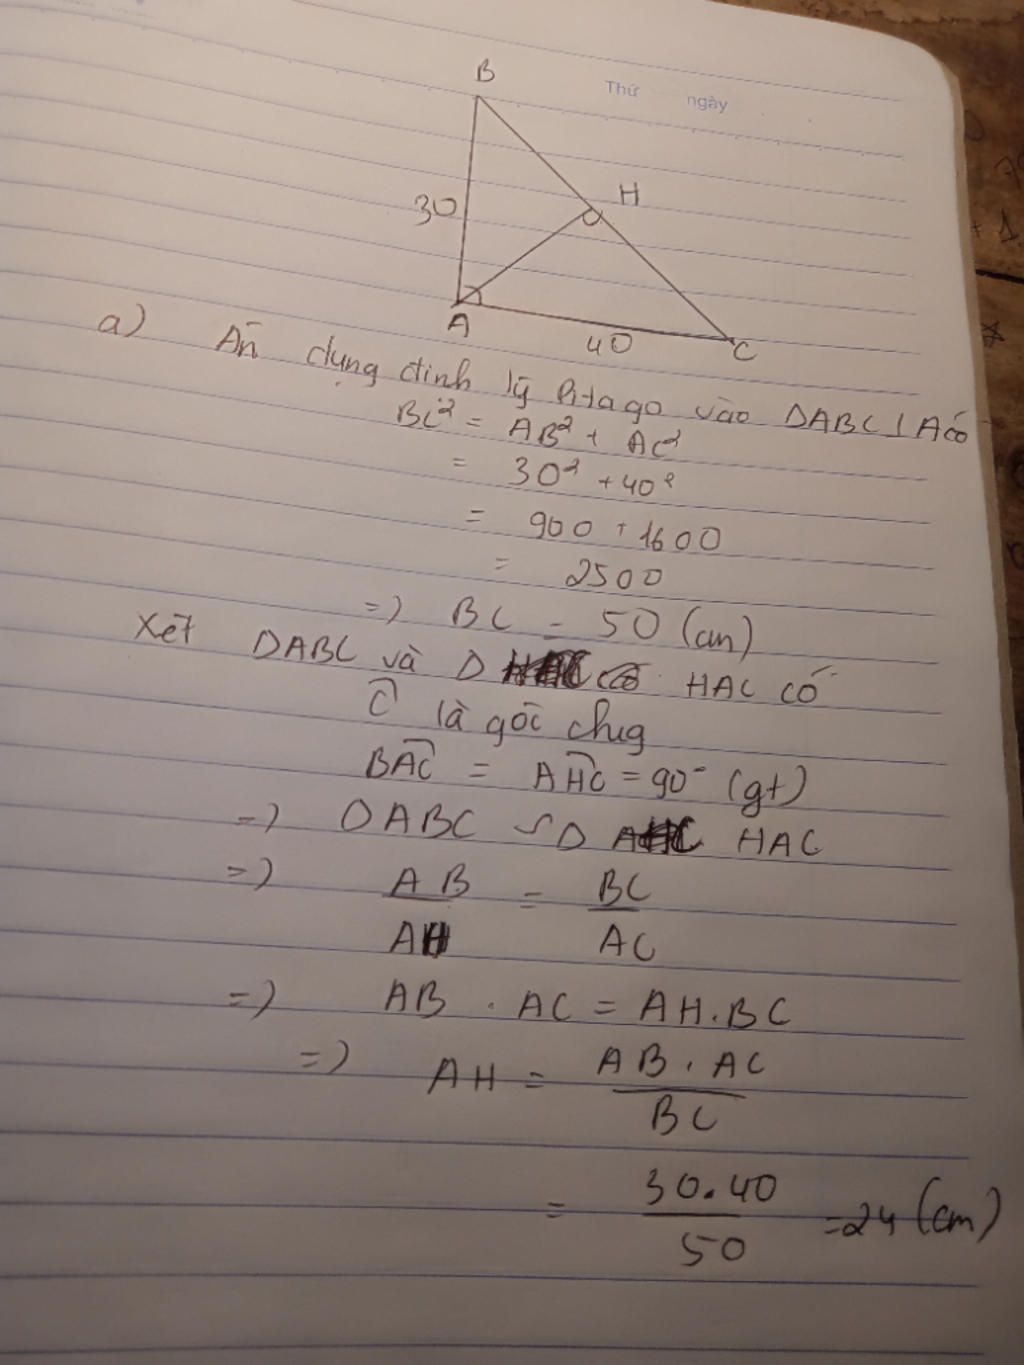 Thứ ngày
B
H
30
A
40
C
a) Áp dụng định lý Pitago vào ΔABC ⊥ A có
BC² = AB² + AC²
= 30² + 40²
= 900 + 1600
= 2500
=) BC = 50 (cm)
Xét ΔABC và Δ HAC có
Ĉ là góc chug
BÂC = AĤC = 90° (gt)
=) ΔABC ∽ Δ HAC
=) AB/AH = BC/AC
=) AB . AC = AH . BC
=) AH = AB . AC/BC
= 30.40/50 = 24 (cm)